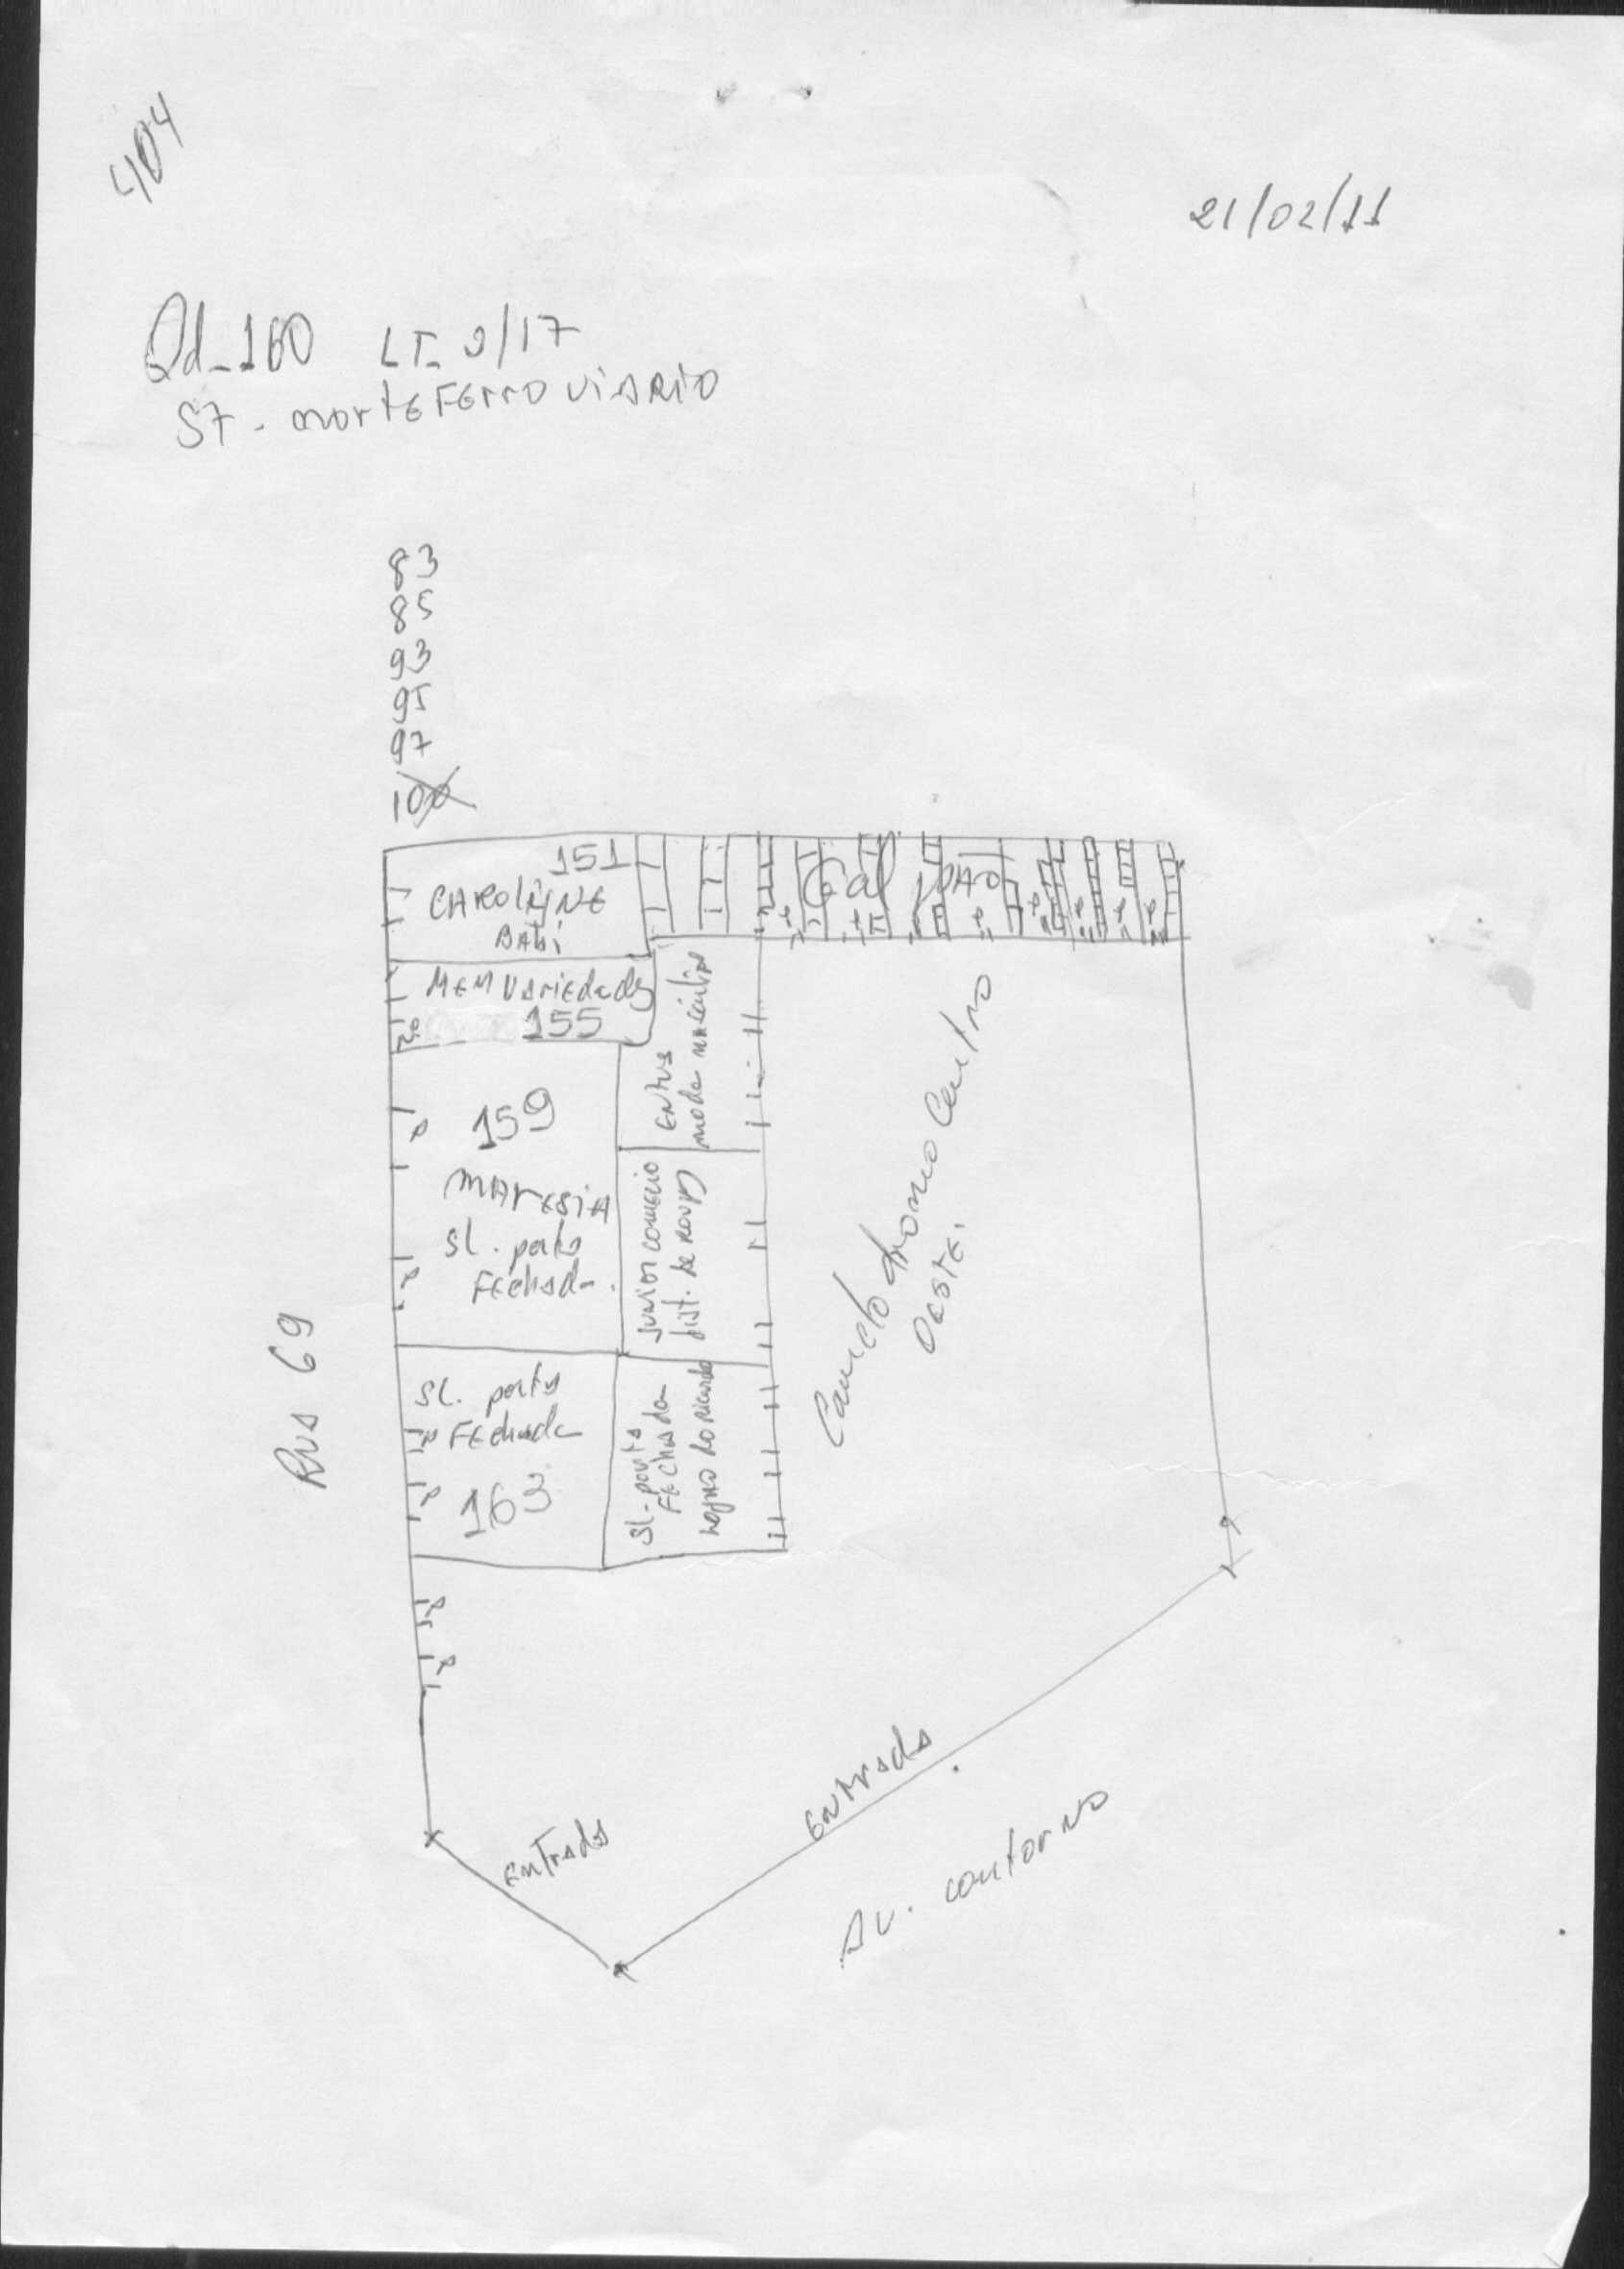 404
21/02/11
Qd_160 LT_ 9/17
ST. norte FErroviArio
83
85
93
95
97
100
151
CAROLYNE
BAbi
MEM VAriedades
155
159
MAresiA
Sl. porta
FEchada.
Sl. porta
FEchada
163
Entus
moda masculina
Junior comercio
dist. de roupas
Sl. porta
FEchada
Galpao
Camelodromo Centro
Oeste.
Rua 69
Entrada
Entrada
Av. contorno